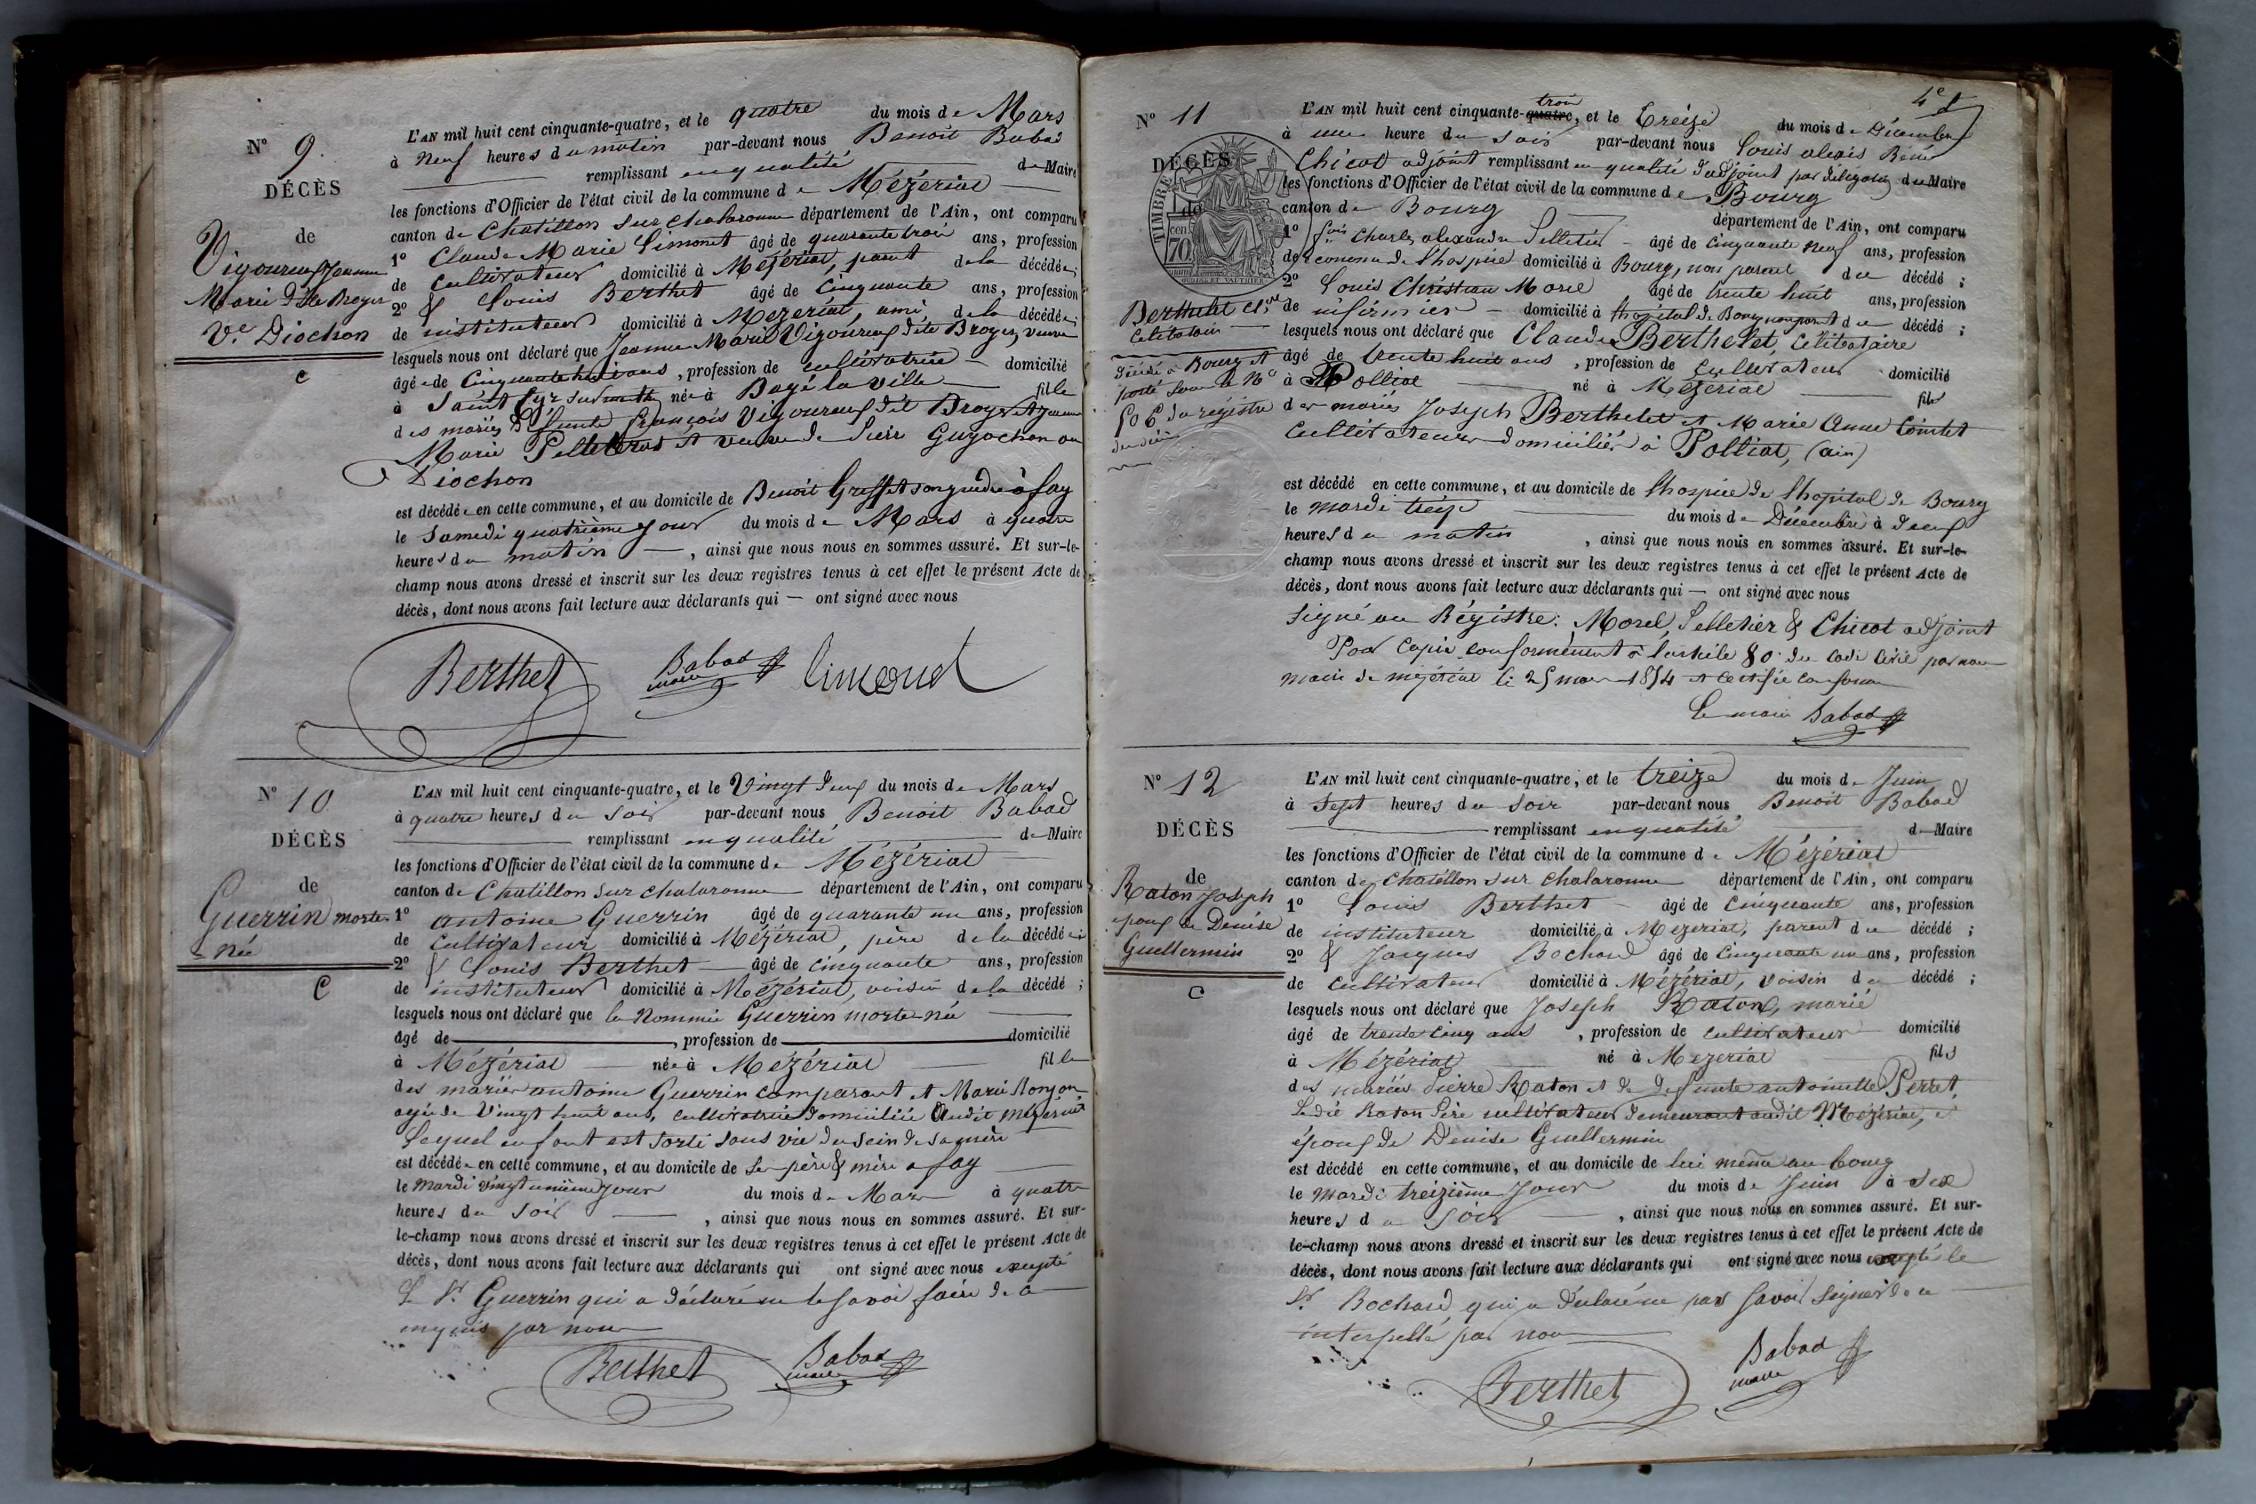 N° 9.
DÉCÈS
de
Vigoureux Jeanne
Marie dite Broyer
Ve Diochon
C
L'AN mil huit cent cinquante-quatre, et le quatre du mois de Mars
à Neuf heures du matin par-devant nous Benoit Babad
remplissant en qualité de Maire
les fonctions d'Officier de l'état civil de la commune de Mézériat
canton de Chatillon sur chalaronne département de l'Ain, ont comparu
1° Claude Marie Limonet âgé de quarante trois ans, profession
de cultivateur domicilié à Mézériat, parent de la décédée;
2° & Louis Berthet âgé de cinquante ans, profession
de instituteur domicilié à Mézériat, ami de la décédée;
lesquels nous ont déclaré que Jeanne Marie Vigoureux dite Broyer, veuve
âgée de Cinquante huit ans, profession de cultivatrice domicilié
à Saint Cyr sur née à Bagé la ville fille
des mariés défunts François Vigoureux dit Broyer et Jeanne
Marie Pelletrat et veuve de Guyochon ou
Diochon
est décédée en cette commune, et au domicile de Benoit Greffet son gendre à fay
le Samedi quatrième jour du mois de Mars à quatre
heures du matin, ainsi que nous nous en sommes assuré. Et sur-le-
champ nous avons dressé et inscrit sur les deux registres tenus à cet effet le présent Acte de
décès, dont nous avons fait lecture aux déclarants qui — ont signé avec nous
Berthet Babad maire Limonet
N° 10
DÉCÈS
de
Guerrin morte
née
C
L'AN mil huit cent cinquante-quatre, et le Vingt deux du mois de Mars
à quatre heures du soir par-devant nous Benoit Babad
remplissant en qualité de Maire
les fonctions d'Officier de l'état civil de la commune de Mézériat
canton de Chatillon sur chalaronne département de l'Ain, ont comparu
1° antoine Guerrin âgé de quarante un ans, profession
de cultivateur domicilié à Mézériat, père de la décédée;
2° & Louis Berthet âgé de cinquante ans, profession
de instituteur domicilié à Mézériat, voisin de la décédé;
lesquels nous ont déclaré que la Nommée Guerrin morte-née
âgé de, profession de domicilié
à Mézériat née à Mézériat fille
des mariés antoine Guerrin comparant et Marie Ronjon
agée de Vingt huit ans, cultivatrice domiciliée audit Mézériat
Lequel enfant est sorti sans vie du sein de sa mère
est décédée en cette commune, et au domicile de Ses père & mère a fay
le Mardi vingt unième jour du mois de Mars à quatre
heures du soir, ainsi que nous nous en sommes assuré. Et sur-
le-champ nous avons dressé et inscrit sur les deux registres tenus à cet effet le présent Acte de
décès, dont nous avons fait lecture aux déclarants qui ont signé avec nous excepté
Le Sr Guerrin qui a déclaré ne le savoir faire de ce
enquis par nous
Berthet Babad maire
4e
N° 11
DÉCÈS
de
TIMBRE
cen. 70
Berthelet Cl.de
Célibataire
décédé à Bourg et
porté sous le N°
du registre
L'AN mil huit cent cinquante-quatre trois, et le treize du mois de Décembre
à une heure du soir par-devant nous Louis alexis René
Chicot adjoint remplissant en qualité d'adjoint par délégation du Maire
les fonctions d'Officier de l'état civil de la commune de Bourg
canton de Bourg département de l'Ain, ont comparu
1° fois Charles alexandre Pelletier âgé de cinquante neuf ans, profession
de économe de l'hospice domicilié à Bourg, non parent du décédé;
2° Louis Christian Morel âgé de trente huit ans, profession
de infirmier domicilié à l'hôpital de Bourg non parent du décédé;
lesquels nous ont déclaré que Claude Berthelet, célibataire
âgé de trente huit ans, profession de Cultivateur domicilié
à Polliat né à Mézériat fils
des mariés Joseph Berthelet et Marie Anne Cointet
Cultivateurs domiciliés à Polliat, (ain)
est décédé en cette commune, et au domicile de l'hospice de l'hôpital de Bourg
le mardi treize du mois de Décembre à deux
heures du matin, ainsi que nous nous en sommes assuré. Et sur-le-
champ nous avons dressé et inscrit sur les deux registres tenus à cet effet le présent Acte de
décès, dont nous avons fait lecture aux déclarants qui — ont signé avec nous
Signé au Régistre: Morel, Pelletier & Chicot adjoint
Pour Copie conformément à l'article 80 du code Civil par nous
maire de mézériat le 25 mars 1854 et certifié conforme
Le maire Babad
N° 12
DÉCÈS
de
Raton Joseph
époux de Denise
Guellermin
C
L'AN mil huit cent cinquante-quatre, et le treize du mois de Juin
à Sept heures du soir par-devant nous Benoit Babad
remplissant en qualité de Maire
les fonctions d'Officier de l'état civil de la commune de Mézériat
canton de Chatillon sur chalaronne département de l'Ain, ont comparu
1° Louis Berthet âgé de Cinquante ans, profession
de instituteur domicilié à Mézériat, parent du décédé;
2° & Jacques Bochard âgé de Cinquante un ans, profession
de cultivateur domicilié à Mézériat, voisin du décédé;
lesquels nous ont déclaré que Joseph Raton, marié
âgé de trente cinq ans, profession de cultivateur domicilié
à Mézériat né à Mézériat fils
des mariés Pierre Raton et de defunte antoinette Perret,
Ledit Raton Père cultivateur demeurant audit Mézériat, et
époux de Denise Guellermin
est décédé en cette commune, et au domicile de lui même au bourg
le mardi treizième Jour du mois de Juin à six
heures du soir, ainsi que nous nous en sommes assuré. Et sur-
le-champ nous avons dressé et inscrit sur les deux registres tenus à cet effet le présent Acte de
décès, dont nous avons fait lecture aux déclarants qui ont signé avec nous excepté le
Sr Bochard qui a déclaré ne pas savoir signer de ce
interpellé par nous
Berthet Babad maire